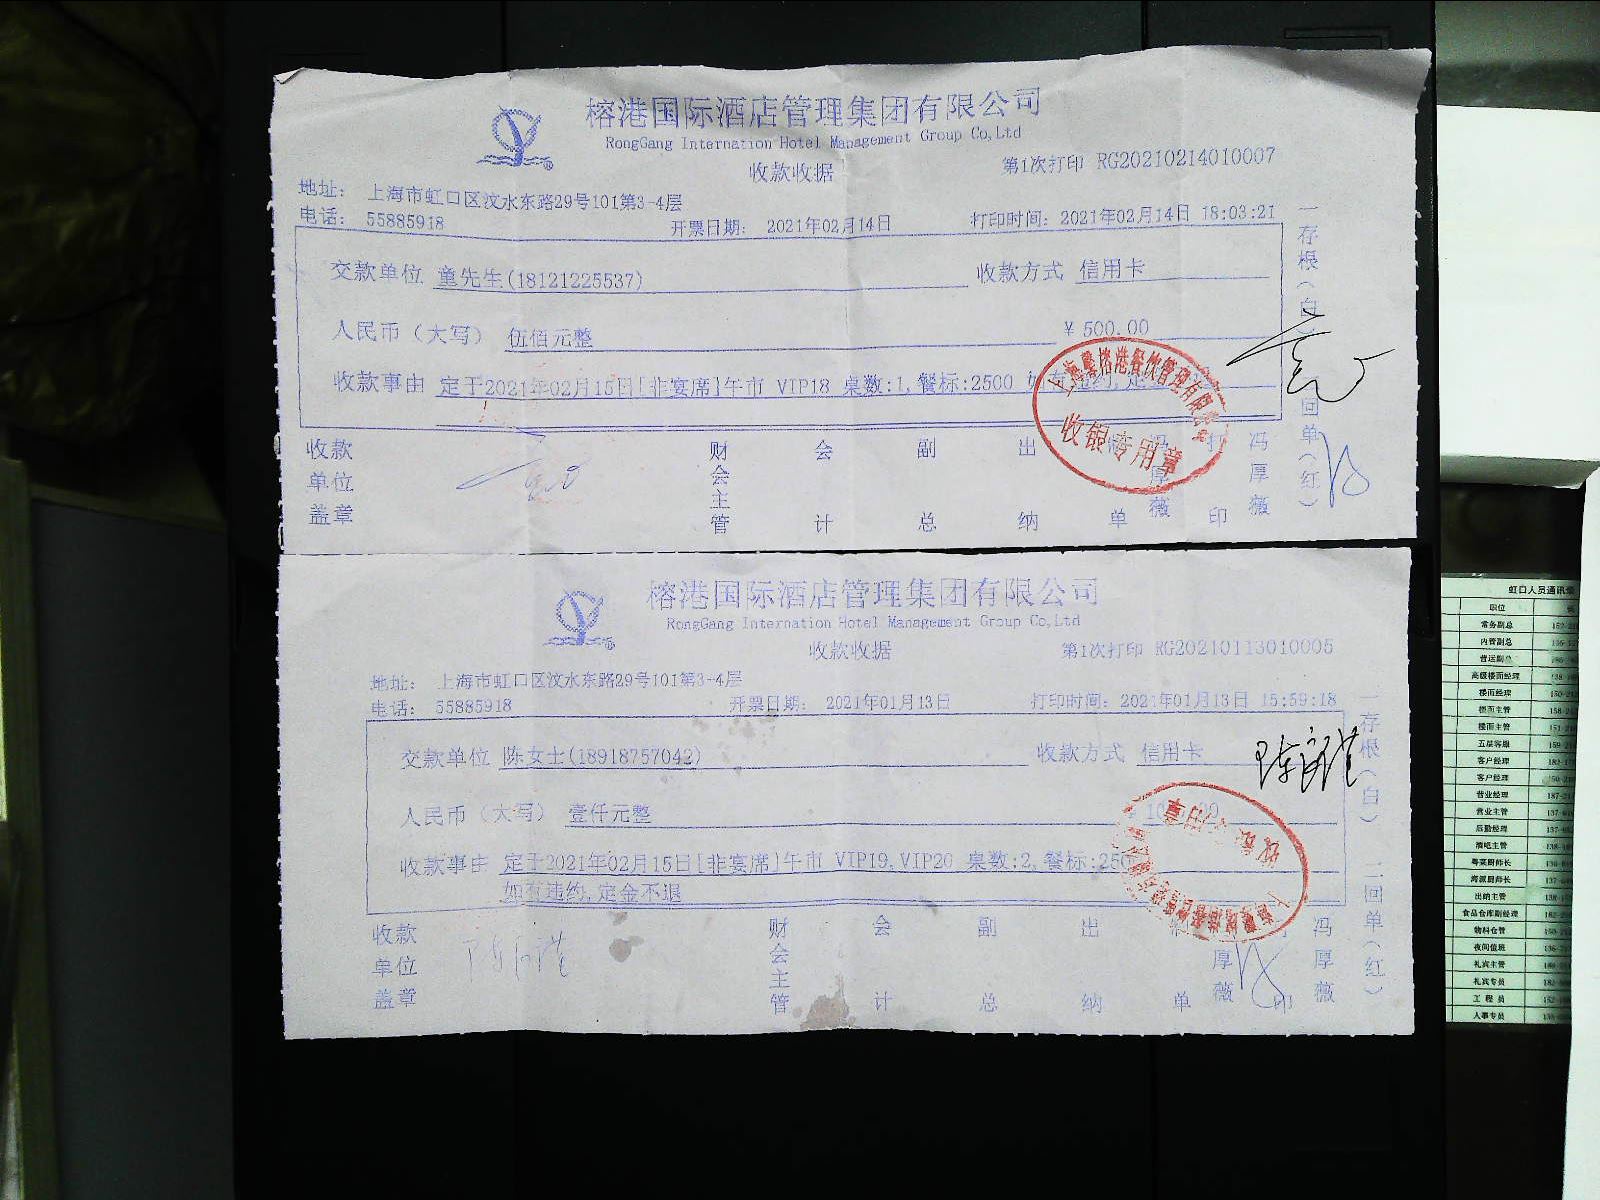 榕港国际酒店管理集团有限公司
RongGang Internation Hotel Management Group Co,Ltd
收款收据
第1次打印 RG20210214010007
地址： 上海市虹口区汶水东路29号101第3-4层
电话： 55885918
开票日期： 2021年02月14日
打印时间：2021年02月14日 18:03:21
交款单位 童先生(18121225537)
收款方式 信用卡
人民币（大写） 伍佰元整
¥ 500.00
收款事由 定于2021年02月15日[非宴席]午市 VIP18 桌数:1,餐标:2500
上海馨榕港餐饮管理有限公司
收银专用章
收款单位盖章
财会主管
会计
副总
出纳
单
厚薇
打印
冯厚薇
一存根（白）
回单（红）
榕港国际酒店管理集团有限公司
RongGang Internation Hotel Management Group Co,Ltd
收款收据
第1次打印 RG20210113010005
地址： 上海市虹口区汶水东路29号101第3-4层
电话： 55885918
开票日期： 2021年01月13日
打印时间：2021年01月13日 15:59:18
交款单位 陈女士(18918757042)
收款方式 信用卡
人民币（大写） 壹仟元整
收款事由 定于2021年02月15日[非宴席]午市 VIP19,VIP20 桌数:2,餐标:250
如有违约,定金不退
收款单位盖章
财会主管
会计
副总
出纳
单
厚薇
印
冯厚薇
一存根（白）
二回单（红）
虹口人员通讯
职位
常务副总
内管副总
营运副总
高级楼面经理
楼面经理
楼面主管
楼面主管
五星客服
客户经理
客户经理
营业经理
营业主管
后勤经理
酒吧主管
粤菜厨师长
海派厨师长
出纳主管
食品仓库副经理
物料仓管
夜间值班
礼宾主管
礼宾专员
工程员
人事专员